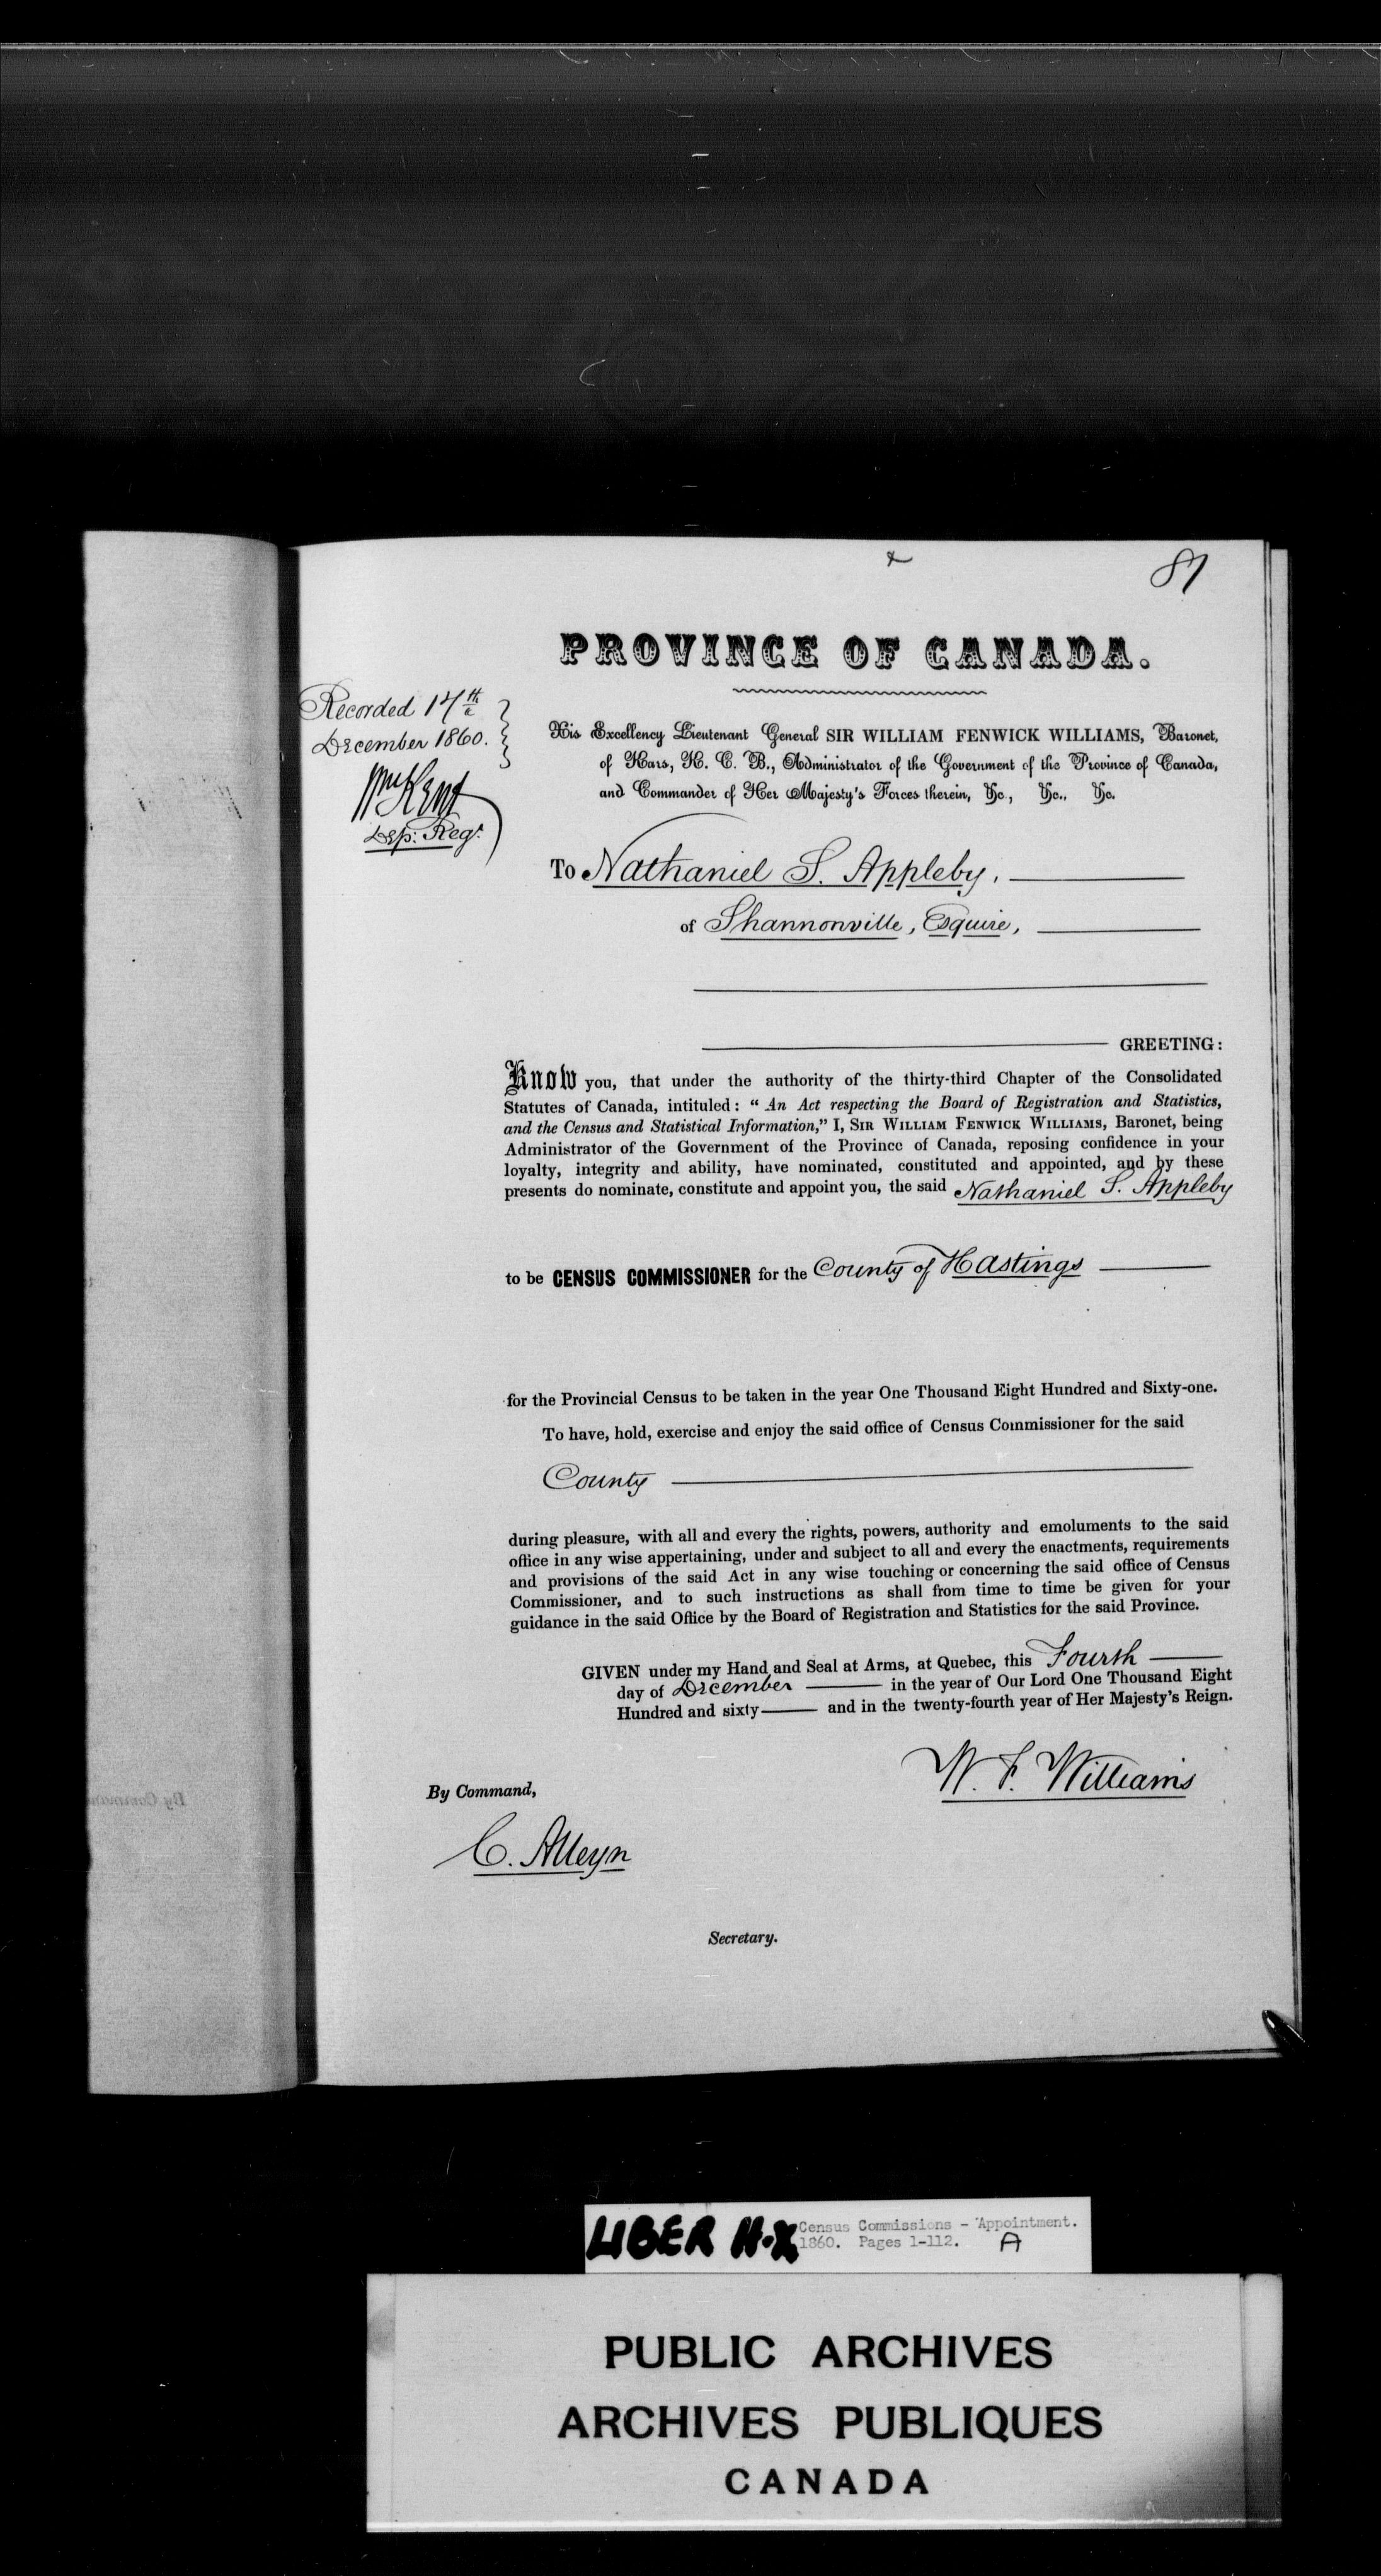 81
PROVINCE OF CANADA.
Recorded 14th
December 1860.
Wm Kent
Dep: Regr.
His Excellency Lieutenant General SIR WILLIAM FENWICK WILLIAMS, Baronet,
of Kars, K. C. B., Administrator of the Government of the Province of Canada,
and Commander of Her Majesty's Forces therein, &c., &c., &c.
To Nathaniel S. Appleby,
of Shannonville, Esquire,
GREETING:
Know you, that under the authority of the thirty-third Chapter of the Consolidated
Statutes of Canada, intituled: "An Act respecting the Board of Registration and Statistics,
and the Census and Statistical Information," I, SIR WILLIAM FENWICK WILLIAMS, Baronet, being
Administrator of the Government of the Province of Canada, reposing confidence in your
loyalty, integrity and ability, have nominated, constituted and appointed, and by these
presents do nominate, constitute and appoint you, the said Nathaniel S. Appleby
to be CENSUS COMMISSIONER for the County of Hastings
for the Provincial Census to be taken in the year One Thousand Eight Hundred and Sixty-one.
To have, hold, exercise and enjoy the said office of Census Commissioner for the said
County
during pleasure, with all and every the rights, powers, authority and emoluments to the said
office in any wise appertaining, under and subject to all and every the enactments, requirements
and provisions of the said Act in any wise touching or concerning the said office of Census
Commissioner, and to such instructions as shall from time to time be given for your
guidance in the said Office by the Board of Registration and Statistics for the said Province.
GIVEN under my Hand and Seal at Arms, at Quebec, this Fourth
day of December in the year of Our Lord One Thousand Eight
Hundred and sixty and in the twenty-fourth year of Her Majesty's Reign.
W. F. Williams
By Command,
C. Alleyn
Secretary.
LIBER H.X Census Commissions - Appointment.
1860. Pages 1-112. A
PUBLIC ARCHIVES
ARCHIVES PUBLIQUES
CANADA